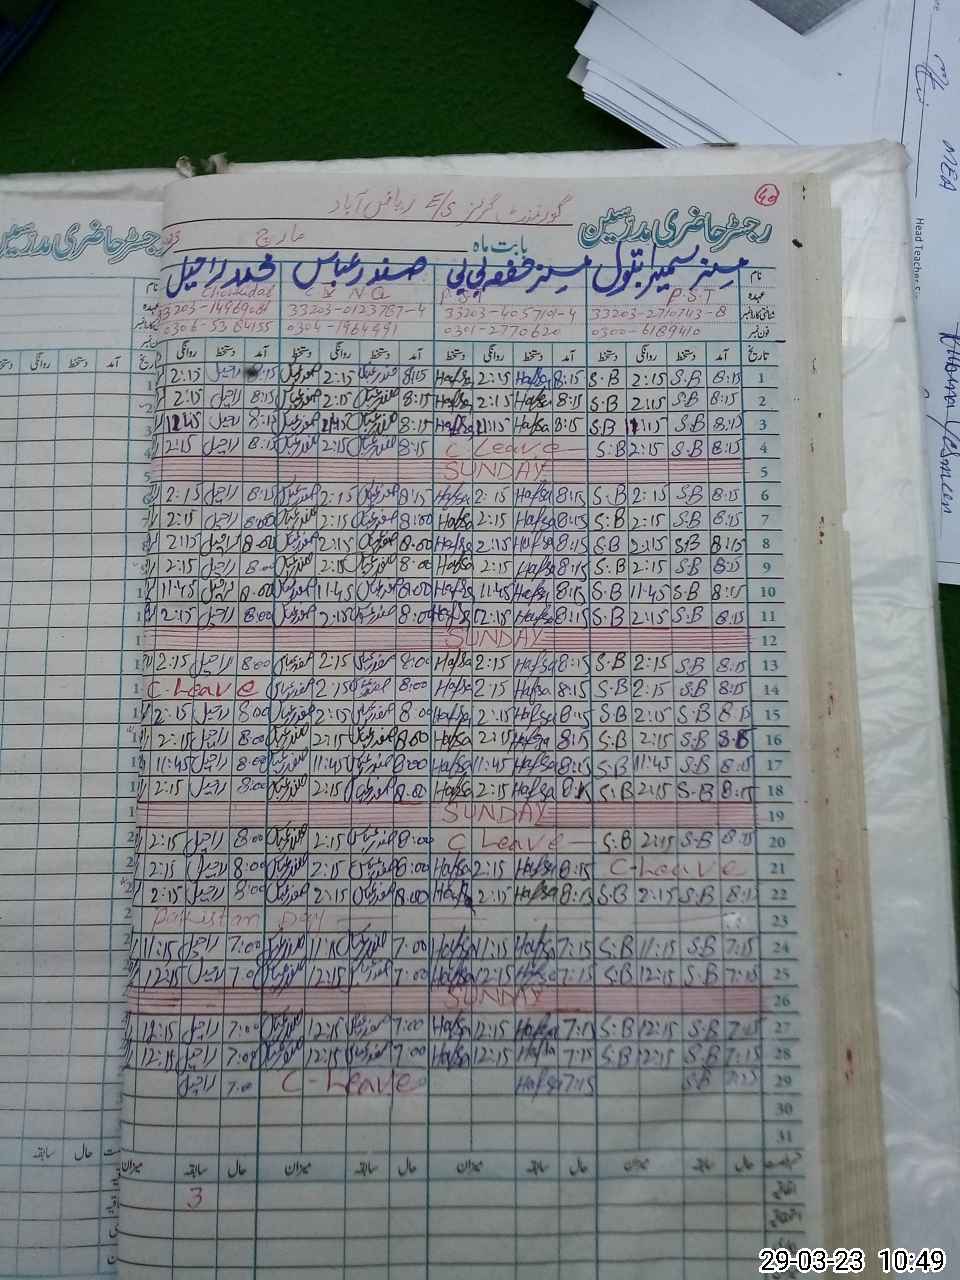 40
گورنمنٹ گرلز E/S ریاض آباد
رجسٹر حاضری مدرسین
بابت ماہ مارچ
نام مسز سمیرا بتول مسز حفصہ بی بی صفدر عباس محمد راحیل
عہدہ P.S.T P.S.T N Q Chowkidar
33203-2710743-8 33203-4057101-4 33203-0123767-4
فون نمبر 0300-6189410 0301-2770620 0304-1964991 0306-5384155
تاریخ آمد دستخط روانگی دستخط آمد دستخط روانگی دستخط آمد دستخط روانگی دستخط آمد دستخط روانگی
1 8:15 S.B 2:15 S.B 8:15 Hafsa 2:15 Hafsa 8:15 صفدر عباس 2:15 صفدر عباس 8:15 راحیل 2:15
2 8:15 S.B 2:15 S.B 8:15 Hafsa 2:15 Hafsa 8:15 صفدر عباس 2:15 صفدر عباس 8:15 راحیل 2:15
3 8:15 S.B S.B 8:15 Hafsa Hafsa 8:15 صفدر عباس صفدر عباس 8:15 راحیل
4 8:15 S.B 2:15 S.B C Leave 8:15 صفدر عباس 2:15 صفدر عباس 8:15 راحیل 2:15
5 SUNDAY
6 8:15 S.B 2:15 S.B 8:15 Hafsa 2:15 Hafsa 8:15 صفدر عباس 2:15 صفدر عباس 8:15 راحیل 2:15
7 8:15 S.B 2:15 S.B 8:15 Hafsa 2:15 Hafsa 8:00 صفدر عباس 2:15 صفدر عباس 8:00 راحیل 2:15
8 8:15 S.B 2:15 S.B 8:15 Hafsa 2:15 Hafsa 8:00 صفدر عباس 2:15 صفدر عباس 8:00 راحیل 2:15
9 8:15 S.B 2:15 S.B 8:15 Hafsa 2:15 Hafsa 8:00 صفدر عباس 2:15 صفدر عباس 8:00 راحیل 2:15
10 8:15 S.B 11:45 S.B 8:15 Hafsa 11:45 Hafsa 8:00 صفدر عباس 11:45 صفدر عباس 8:00 راحیل 11:45
11 8:15 S.B 2:15 S.B 8:15 Hafsa 2:15 Hafsa 8:00 صفدر عباس 2:15 صفدر عباس 8:00 راحیل 2:15
12 SUNDAY
13 8:15 S.B 2:15 S.B 8:15 Hafsa 2:15 Hafsa 8:00 صفدر عباس 2:15 صفدر عباس 8:00 راحیل 2:15
14 8:15 S.B 2:15 S.B 8:15 Hafsa 2:15 Hafsa 8:00 صفدر عباس 2:15 صفدر عباس C-Leave
15 8:15 S.B 2:15 S.B 8:15 Hafsa 2:15 Hafsa 8:00 صفدر عباس 2:15 صفدر عباس 8:00 راحیل 2:15
16 S.B 2:15 S.B 8:15 Hafsa 2:15 Hafsa 8:00 صفدر عباس 2:15 صفدر عباس 8:00 راحیل 2:15
17 8:15 S.B 11:45 S.B 8:15 Hafsa 11:45 Hafsa 8:00 صفدر عباس 11:45 صفدر عباس 8:00 راحیل 11:45
18 8:15 S.B 2:15 S.B 8:15 Hafsa 2:15 Hafsa 8:00 صفدر عباس 2:15 صفدر عباس 8:00 راحیل 2:15
19 SUNDAY
20 8:15 S.B 2:15 S.B C Leave 8:00 صفدر عباس 2:15 صفدر عباس 8:00 راحیل 2:15
21 C-Leave 8:15 Hafsa 2:15 Hafsa 8:00 صفدر عباس 2:15 صفدر عباس 8:00 راحیل 2:15
22 8:15 S.B 2:15 S.B 8:15 Hafsa 2:15 Hafsa 8:00 صفدر عباس 2:15 صفدر عباس 8:00 راحیل 2:15
23 Pakistan Day
24 7:15 S.B 11:15 S.B 7:15 Hafsa 11:15 Hafsa 7:00 صفدر عباس 11:15 صفدر عباس 7:00 راحیل 11:15
25 7:15 S.B 12:15 S.B 7:15 Hafsa 12:15 Hafsa 7:00 صفدر عباس 12:15 صفدر عباس 7:00 راحیل 12:15
26 SUNDAY
27 7:15 S.B 12:15 S.B 7:15 Hafsa 12:15 Hafsa 7:00 صفدر عباس 12:15 صفدر عباس 7:00 راحیل 12:15
28 7:15 S.B 12:15 S.B 7:15 Hafsa 12:15 Hafsa 7:00 صفدر عباس 12:15 صفدر عباس 7:00 راحیل 12:15
29 7:15 S.B 7:15 Hafsa C-Leave 7:00 راحیل
30
31
حال سابقہ میزان حال سابقہ میزان حال سابقہ میزان حال سابقہ میزان
3
MEA
Head Teacher
29-03-23 10:49